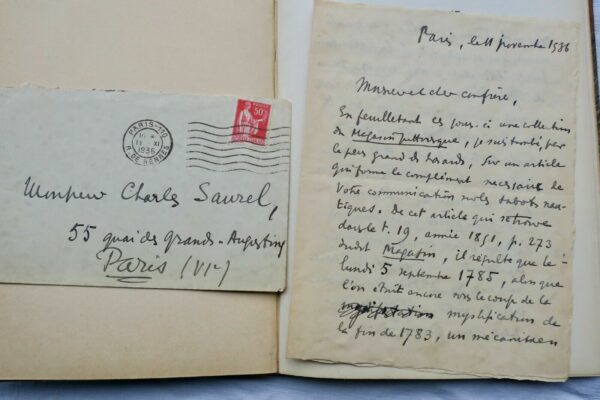 PARIS-110
11 XI
1936
R. DE RENNES
50c
Monsieur Charles Saurel,
55 quai des Grands-Augustins
Paris (VIe)
Paris, le 11 novembre 1936
Monsieur et cher confrère,
En feuilletant ces jours-ci une collection
du Magasin pittoresque, je suis tombé, par
le plus grand des hasards, sur un article
qui forme le complément nécessaire de
votre communication sur les sabots nau-
tiques. De cet article qui se trouve
dans le t. 19, année 1851, p. 273
dudit Magasin, il résulte que le
lundi 5 septembre 1785, alors que
l'on était encore sous le coup de la
mystification de
la fin de 1783, un mécanicien